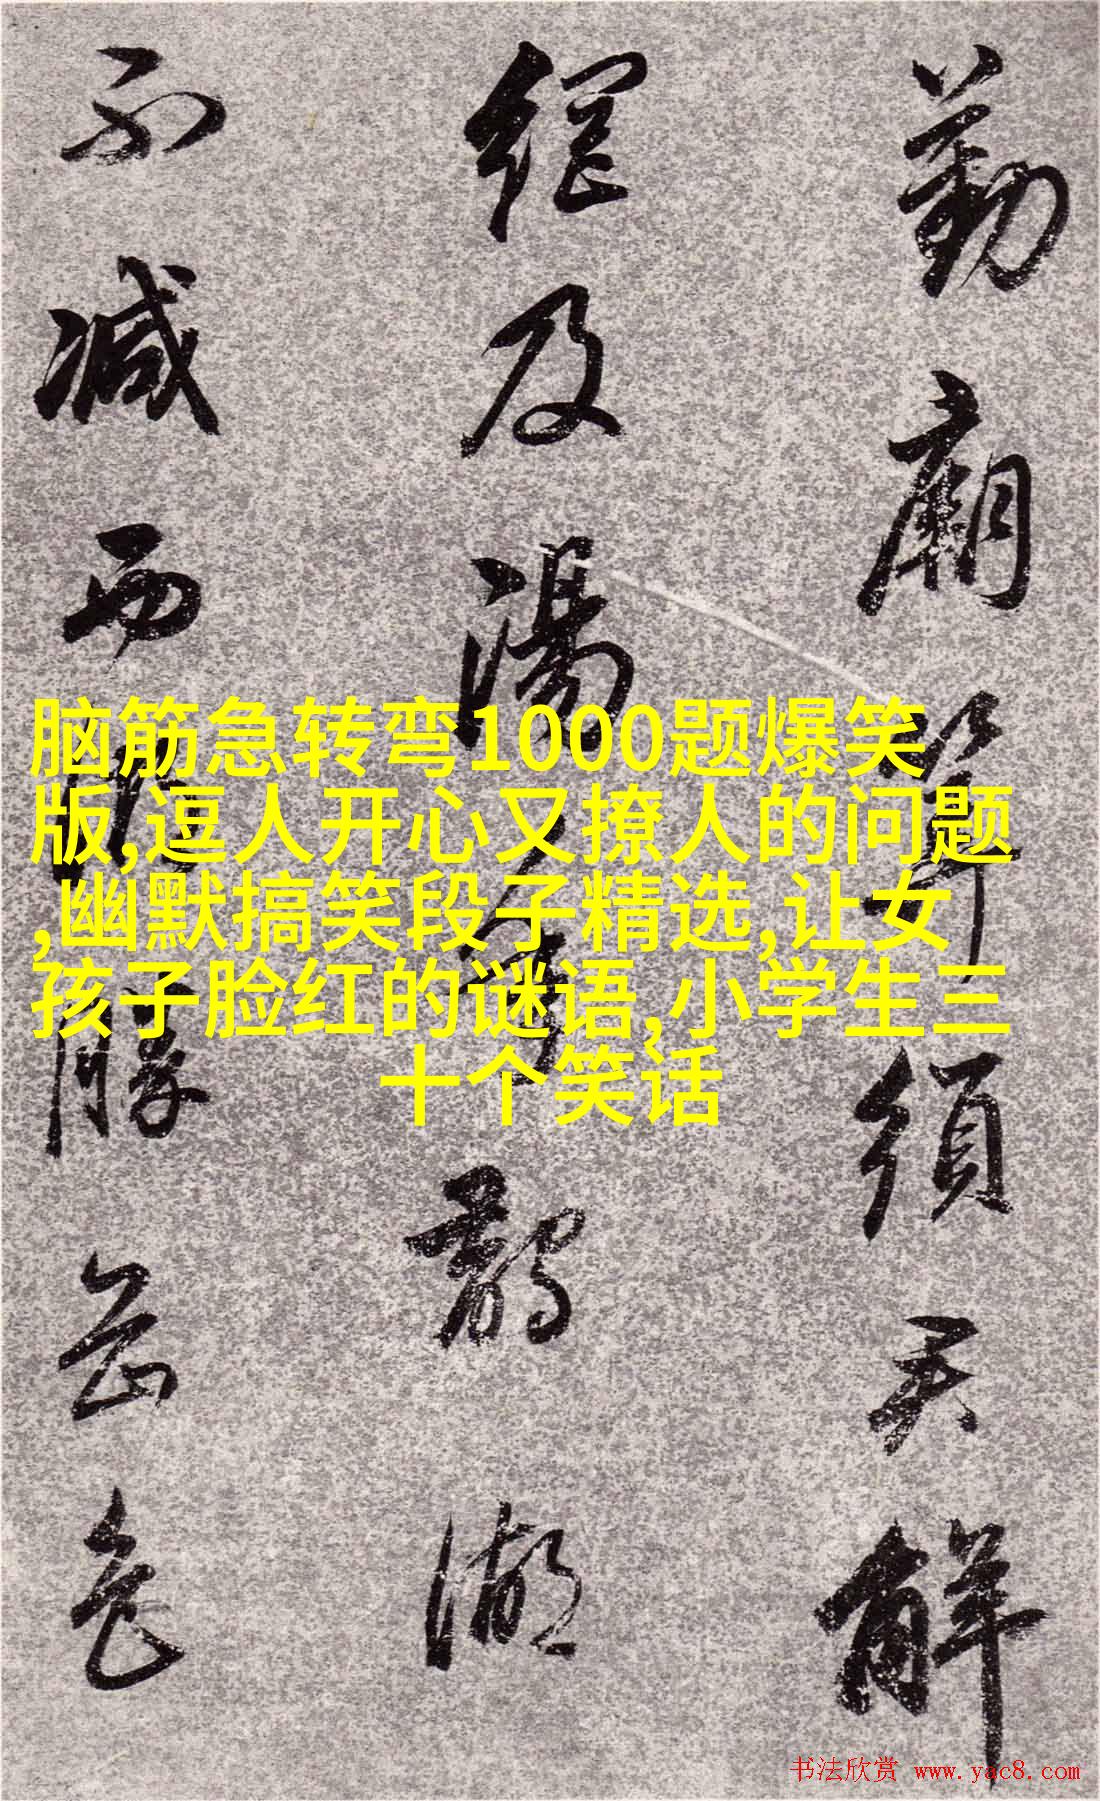 勤廟筭須君解
綱及湯湖
不減西勝
脑筋急转弯1000题爆笑
版,逗人开心又撩人的问题
,幽默搞笑段子精选,让女
孩子脸红的谜语,小学生三
十个笑话
书法欣赏 www.yac8.com